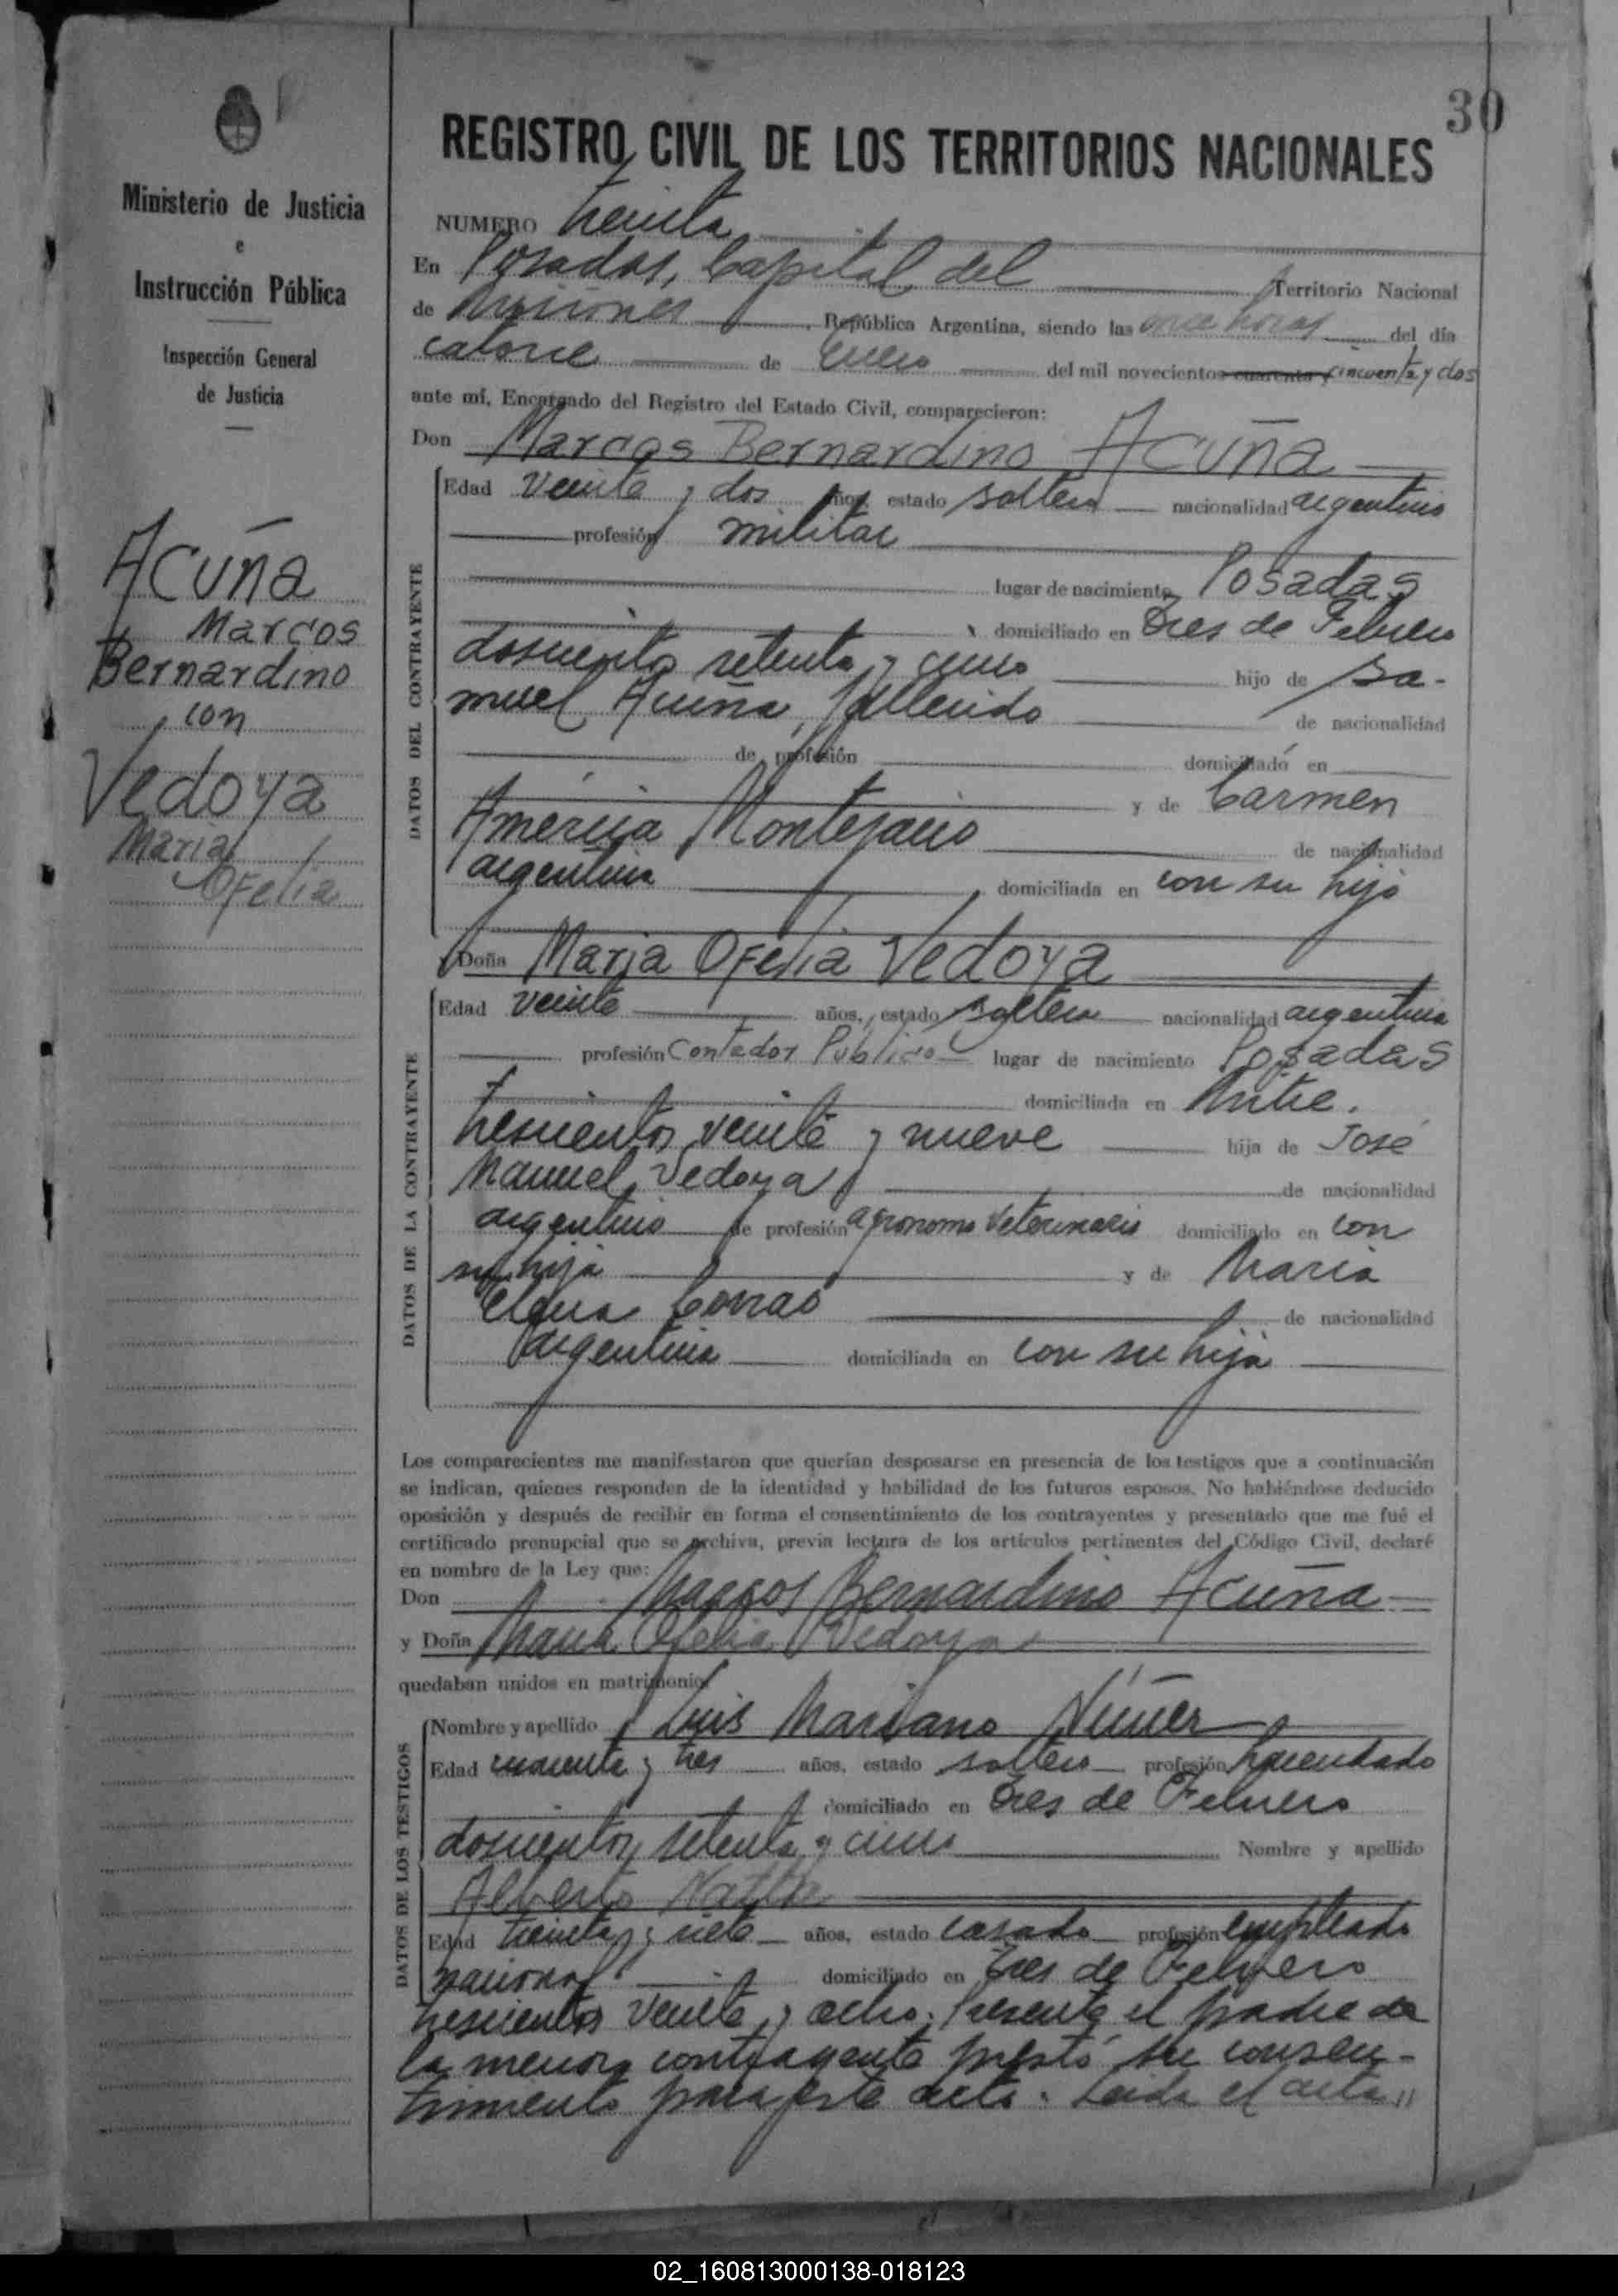 30
Ministerio de Justicia
e
Instrucción Pública
Inspección General
de Justicia
Acuña
Marcos
Bernardino
con
Vedoya
Maria
Ofelia
REGISTRO CIVIL DE LOS TERRITORIOS NACIONALES
NUMERO treinta
En Posadas, Capital del Territorio Nacional
de Misiones, República Argentina, siendo las once horas del día
catorce de Enero del mil novecientos cuarenta y cincuenta y dos
ante mí, Encargado del Registro del Estado Civil, comparecieron:
Don Marcos Bernardino Acuña
DATOS DEL CONTRAYENTE
Edad veinte y dos años, estado soltero nacionalidad argentino
profesión militar
lugar de nacimiento Posadas
domiciliado en Tres de Febrero
doscientos setenta y cinco hijo de Sa-
muel Acuña, fallecido de nacionalidad
de profesión domiciliado en
y de Carmen
América Montejano de nacionalidad
argentina domiciliada en con su hijo
Doña Maria Ofelia Vedoya
DATOS DE LA CONTRAYENTE
Edad veinte años, estado soltera nacionalidad argentina
profesión Contador Público lugar de nacimiento Posadas
domiciliada en Mitre.
trescientos veinte y nueve hija de José
Manuel Vedoya de nacionalidad
argentino de profesión agronomo veterinario domiciliado en con
su hija y de Maria
Elena de nacionalidad
argentina domiciliada en con su hija
Los comparecientes me manifestaron que querían desposarse en presencia de los testigos que a continuación
se indican, quienes responden de la identidad y habilidad de los futuros esposos. No habiéndose deducido
oposición y después de recibir en forma el consentimiento de los contrayentes y presentado que me fué el
certificado prenupcial que se archiva, previa lectura de los artículos pertinentes del Código Civil, declaré
en nombre de la Ley que:
Don Marcos Bernardino Acuña
y Doña Maria Ofelia Vedoya
quedaban unidos en matrimonio
DATOS DE LOS TESTIGOS
Nombre y apellido Luis Mariano Núñez
Edad cuarenta y tres años, estado soltero profesión hacendado
domiciliado en Tres de Febrero
doscientos setenta y cinco Nombre y apellido
Alberto
Edad treinta y siete años, estado casado profesión empleado
nacional domiciliado en Tres de Febrero
trescientos veinte y ocho. Presente el padre de
la menor contrayente prestó su consen-
timiento para este acto. Leida el acta,,
02_160813000138-018123